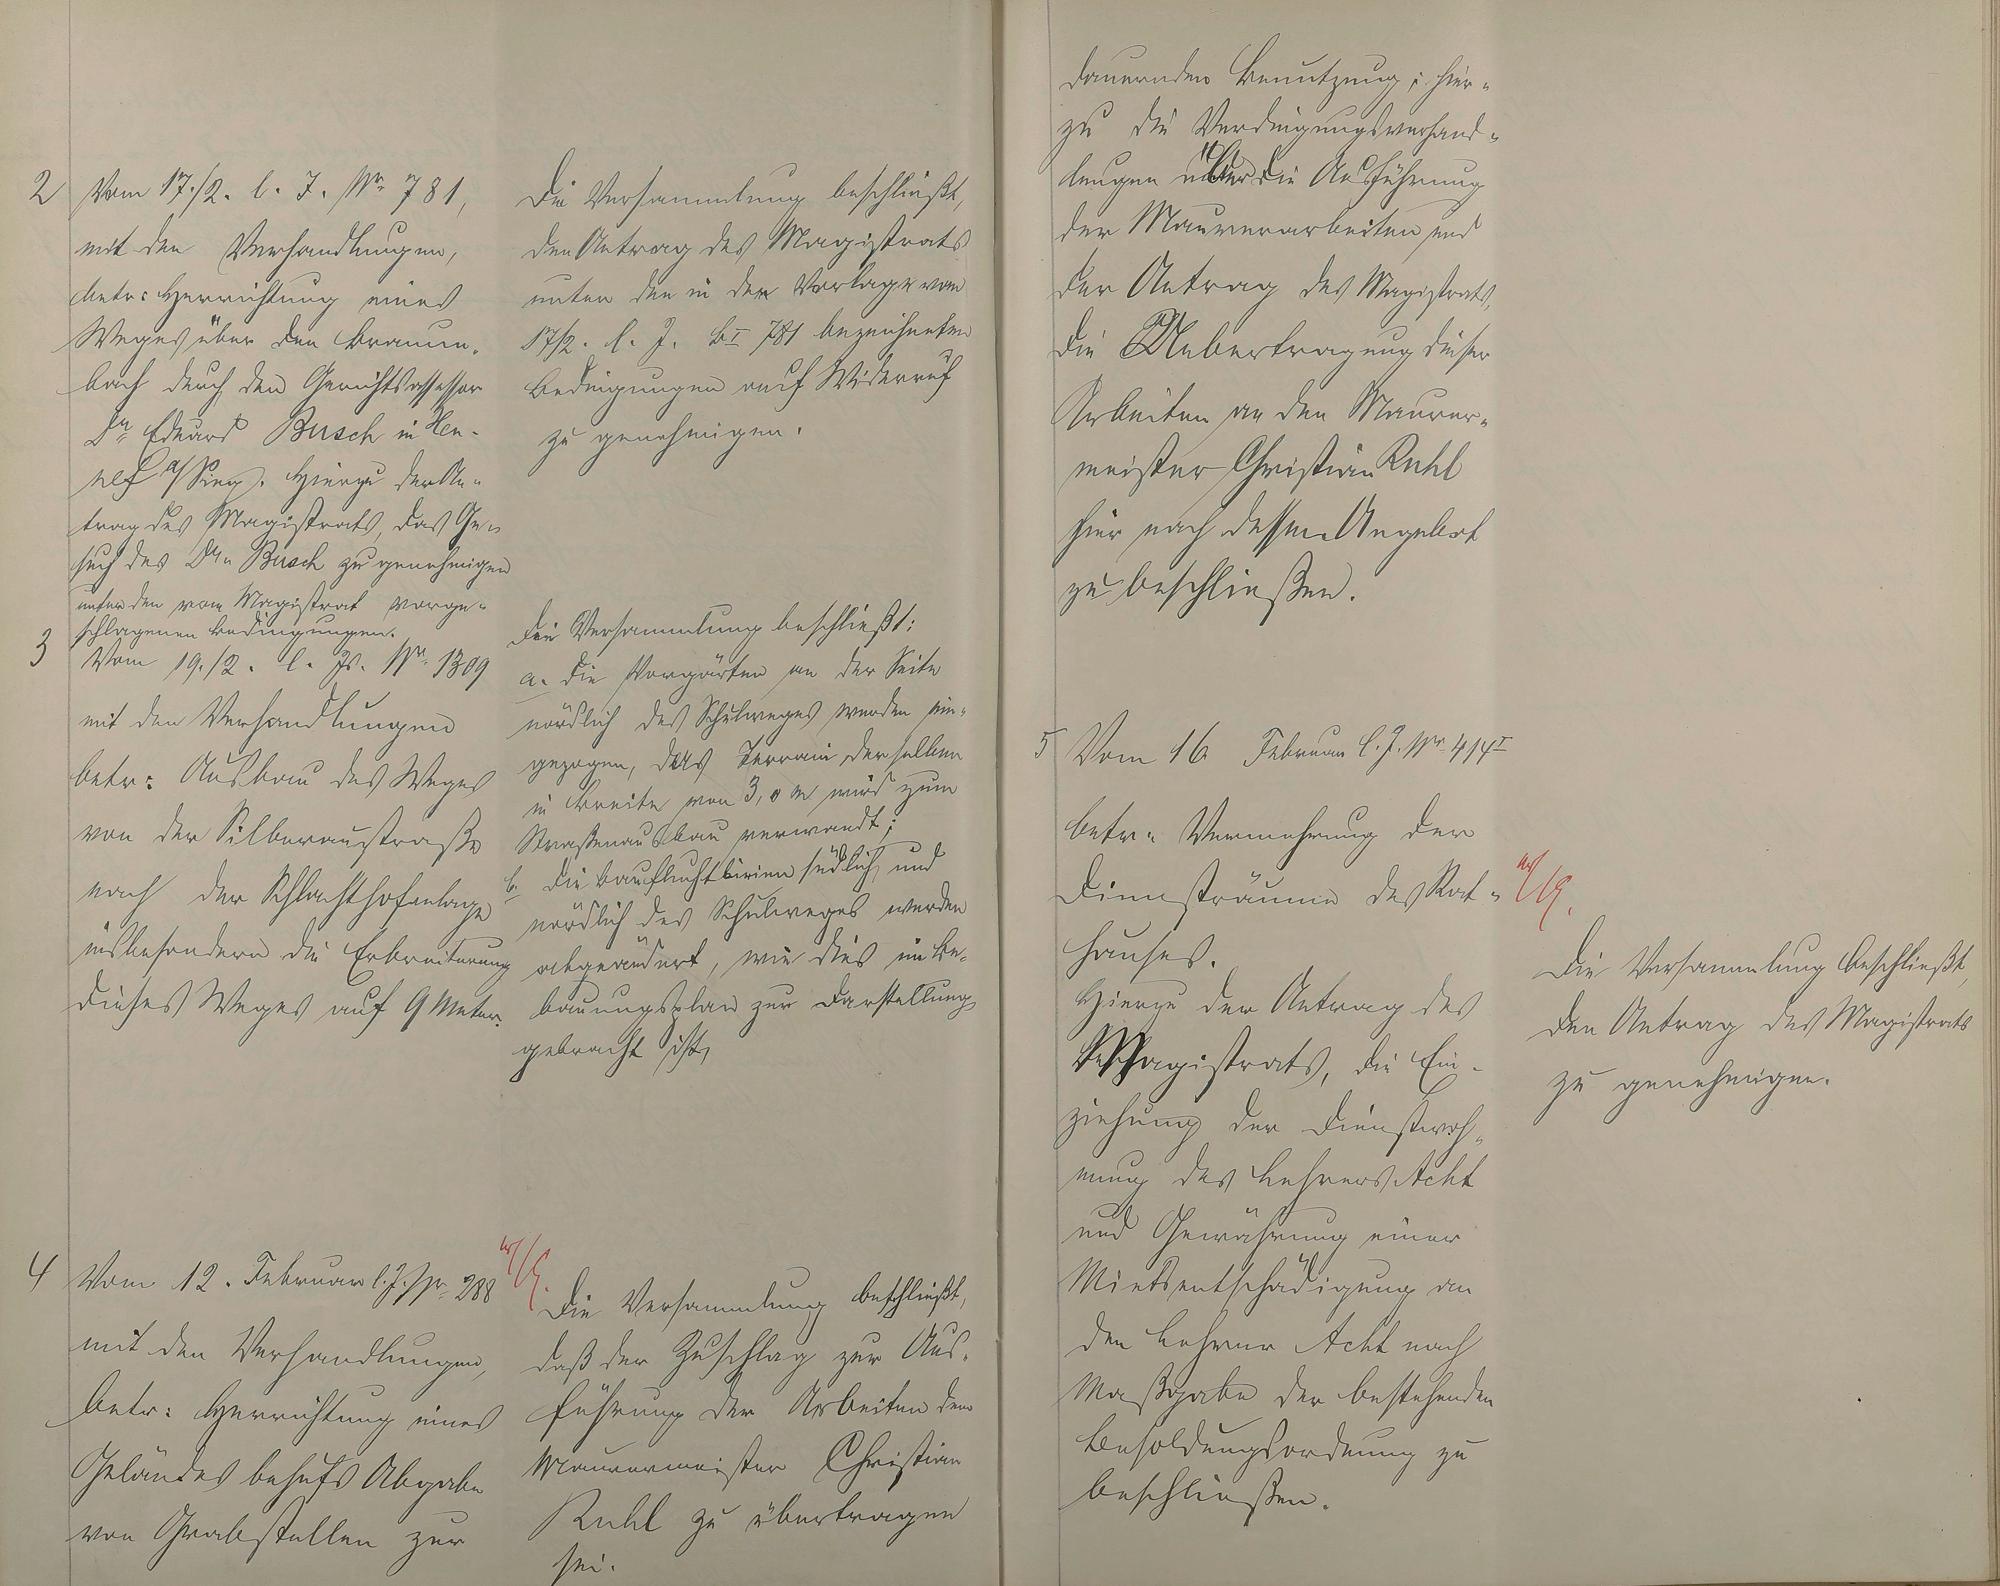 2 Vom 17./2. l. J. Nr. 781,
mit den Verhandlungen,
betr: Herrichtung eines
Weges über den Braum-
bach durch den Gerichtsassessor
Dr. Eduard Busch in Hen-
nef a/Sieg. Hierzu der An-
trag des Magistrats, das Ge-
such des Dr. Busch zu genehmigen
unter den vom Magistrat vorge-
schlagenen Bedingungen.
Die Versammlung beschließt,
den Antrag des Magistrats
unter den in der Vorlage vom
17/2. l. J. B I 781 bezeichneten
Bedingungen auf Widerruf
zu genehmigen.
3 Vom 19./2. l. Js. Nr. 1309
mit den Verhandlungen
betr: Ausbau des Weges
von der Silberaustraße
nach der Schlachthofanlage
insbesondere die Erbreiterung
dieses Weges auf 9 Meter.
Die Versammlung beschließt:
a. die Vorgärten an der Seite
nördlich des Schulweges werden ein-
gezogen, das Terrain derselben
in Breite von 3,0 m wird zum
Straßenausbau verwandt;
b. die Baufluchtlinien südlich und
nördlich des Schulweges werden
abgeändert, wie dies im Be-
bauungsplan zur Darstellung
gebracht ist,
4 Vom 12. Februar l. J. Nr. 288
mit den Verhandlungen,
betr: Herrichtung eines
Geländes behufs Abgabe
von Grabstellen zur
Die Versammlung beschließt,
daß der Zuschlag zur Aus-
führung der Arbeiten dem
Maurermeister Christian
Ruhl zu übertragen
sei.
dauernden Benutzung; hier-
zu die Verdingungsverhand-
lungen über die Ausführung
der Maurerarbeiten und
der Antrag des Magistrats,
die Uebertragung dieser
Arbeiten an den Maurer-
meister Christian Ruhl
hier nach dessen Angebot
zu beschließen.
5 Vom 16 Februar l. J. Nr. 414 I
betr. Vermehrung der
Diensträume des Rat-
hauses.
Hierzu der Antrag des
Magistrats, die Ein-
ziehung der Dienstwoh-
nung des Lehrers Acht
und Gewährung einer
Mietsentschädigung an
den Lehrer Acht nach
Maßgabe der bestehenden
Besoldungsordnung zu
beschließen.
Die Versammlung beschließt,
den Antrag des Magistrats
zu genehmigen.